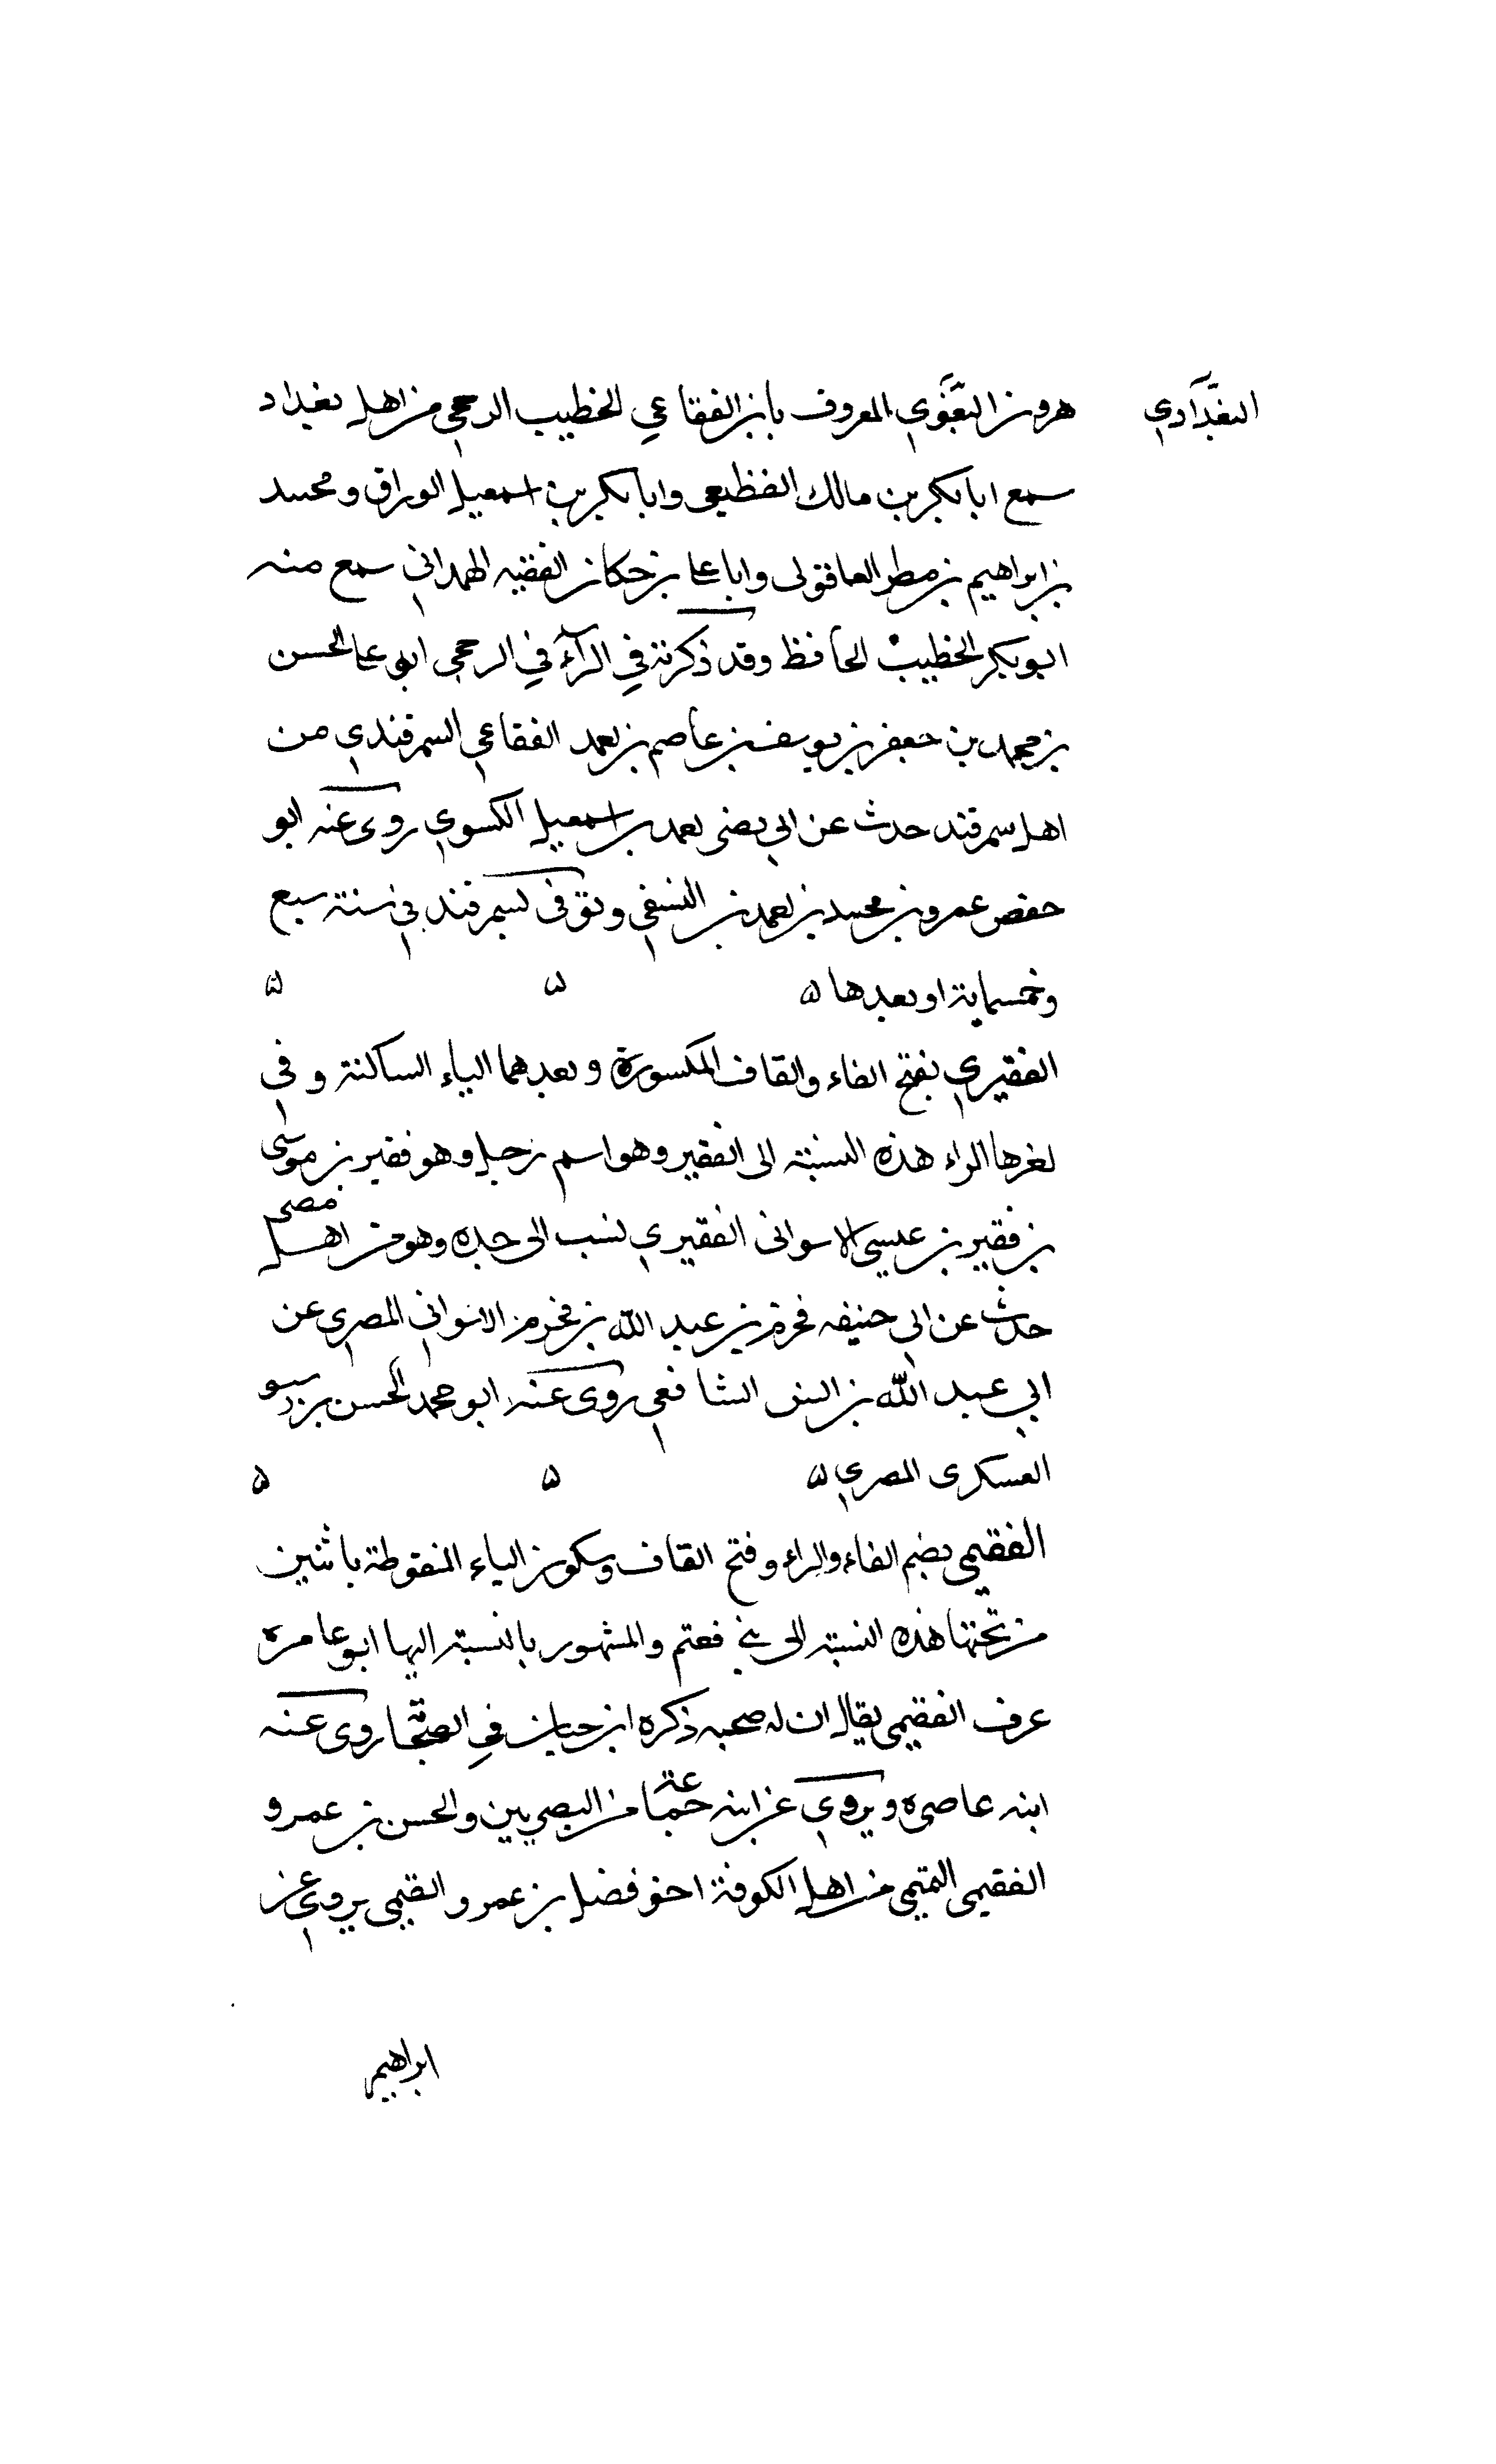 البغدادي
هرون البغوي المعروف بابن الفقاعي الخطيب الرحجي من اهل بغداد
سمع ابا بكر بن مالك القطيعي وابا بكر بن اسمعيل الوراق ومحمد
بن ابراهيم بن مطر العاقولى وابا على بن حكان الفقيه الهمداني سمع منه
ابو بكر الخطيب الحافظ وقد ذكرته في الرآء في الرحجي ابو على الحسن
بن محمد بن جعفر بن يوسف بن عاصم بن احمد الفقاعي السمرقندي من
اهل سمرقند حدث عن ابي احمد بن اسمعيل الكسوي روى عنه ابو
حفص عمرو بن محمد بن احمد بن النسفي وتوفى بسمرقند في سنة سبع
وخمسماية او بعدها ه ه ه
الفقيري بفتح الفاء والقاف المكسورة وبعدهما الياء الساكنة وفي
اخرها الراء هذه النسبة الى الفقير وهو اسم رجل وهو فقير بن موسى
بن فقير بن عيسى الاسوانى الفقيري نسب الى جده وهو من اهل مصر
حدث عن ابي حنيفه قحزم بن عبد الله بن قحزم الاسواني المصري عن
ابي عبد الله بن الشافعي روى عنه ابو محمد الحسن بن رسو
العسكرى المصري ه ه ه
الفقيمي بضم الفاء والراء وفتح القاف وسكون الياء المنقوطة باثنين
من تحتها هذه النسبة الى بني فعتم والمشهور بالنسبة اليها ابو عامره
عرف الفقيمي يقال ان له صحبه ذكره ابن حبان في الصحابة روى عنه
ابنه عاصم ويروي عن ابنه جماعة من البصريين والحسن بن عمرو
الفقيمي التميمي من اهل الكوفة اخو فضل بن عمرو القيمي يروي عن
ابراهيم